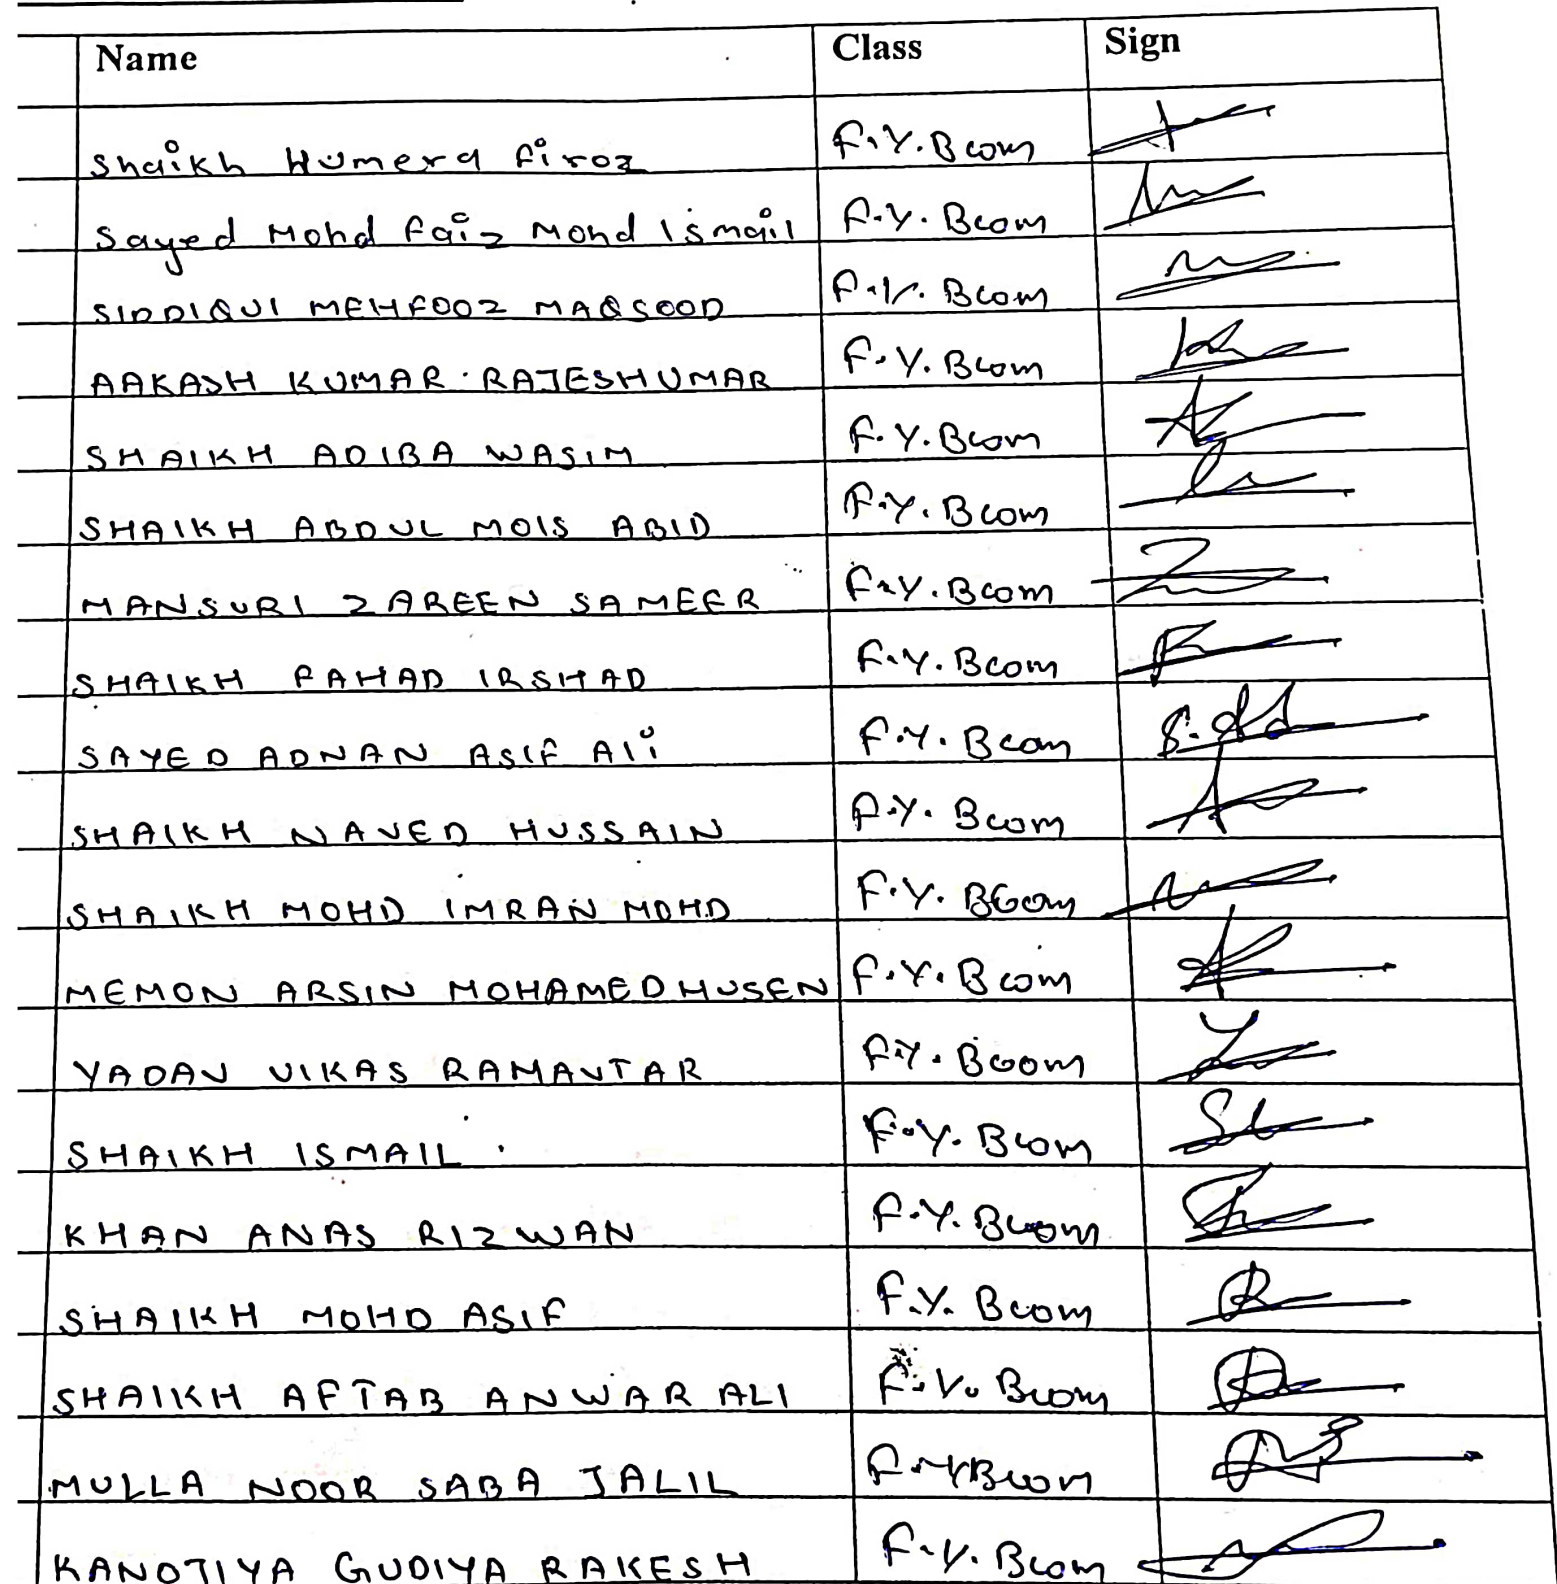 Name Class Sign
Shaikh Humera Firoz F.Y.Bcom
Sayed Mohd Faiz Mohd Ismail F.Y.Bcom
SIDDIQUI MEHFOOZ MAQSOOD F.Y.Bcom
AAKASH KUMAR RAJESHUMAR F.Y.Bcom
SHAIKH ADIBA WASIM F.Y.Bcom
SHAIKH ABDUL MOIS ABID F.Y.Bcom
MANSURI ZAREEN SAMEER F.Y.Bcom
SHAIKH FAHAD IRSHAD F.Y.Bcom
SAYED ADNAN ASIF Ali F.Y.Bcom
SHAIKH NAVED HUSSAIN F.Y.Bcom
SHAIKH MOHD IMRAN MOHD F.Y.Bcom
MEMON ARSIN MOHAMEDHUSEN F.Y.Bcom
YADAV VIKAS RAMAVTAR F.Y.Bcom
SHAIKH ISMAIL F.Y.Bcom
KHAN ANAS RIZWAN F.Y.Bcom
SHAIKH MOHD ASIF F.Y.Bcom
SHAIKH AFTAB ANWAR ALI F.Y.Bcom
MULLA NOOR SABA JALIL F.Y.Bcom
KANOJIYA GUDIYA RAKESH F.Y.Bcom